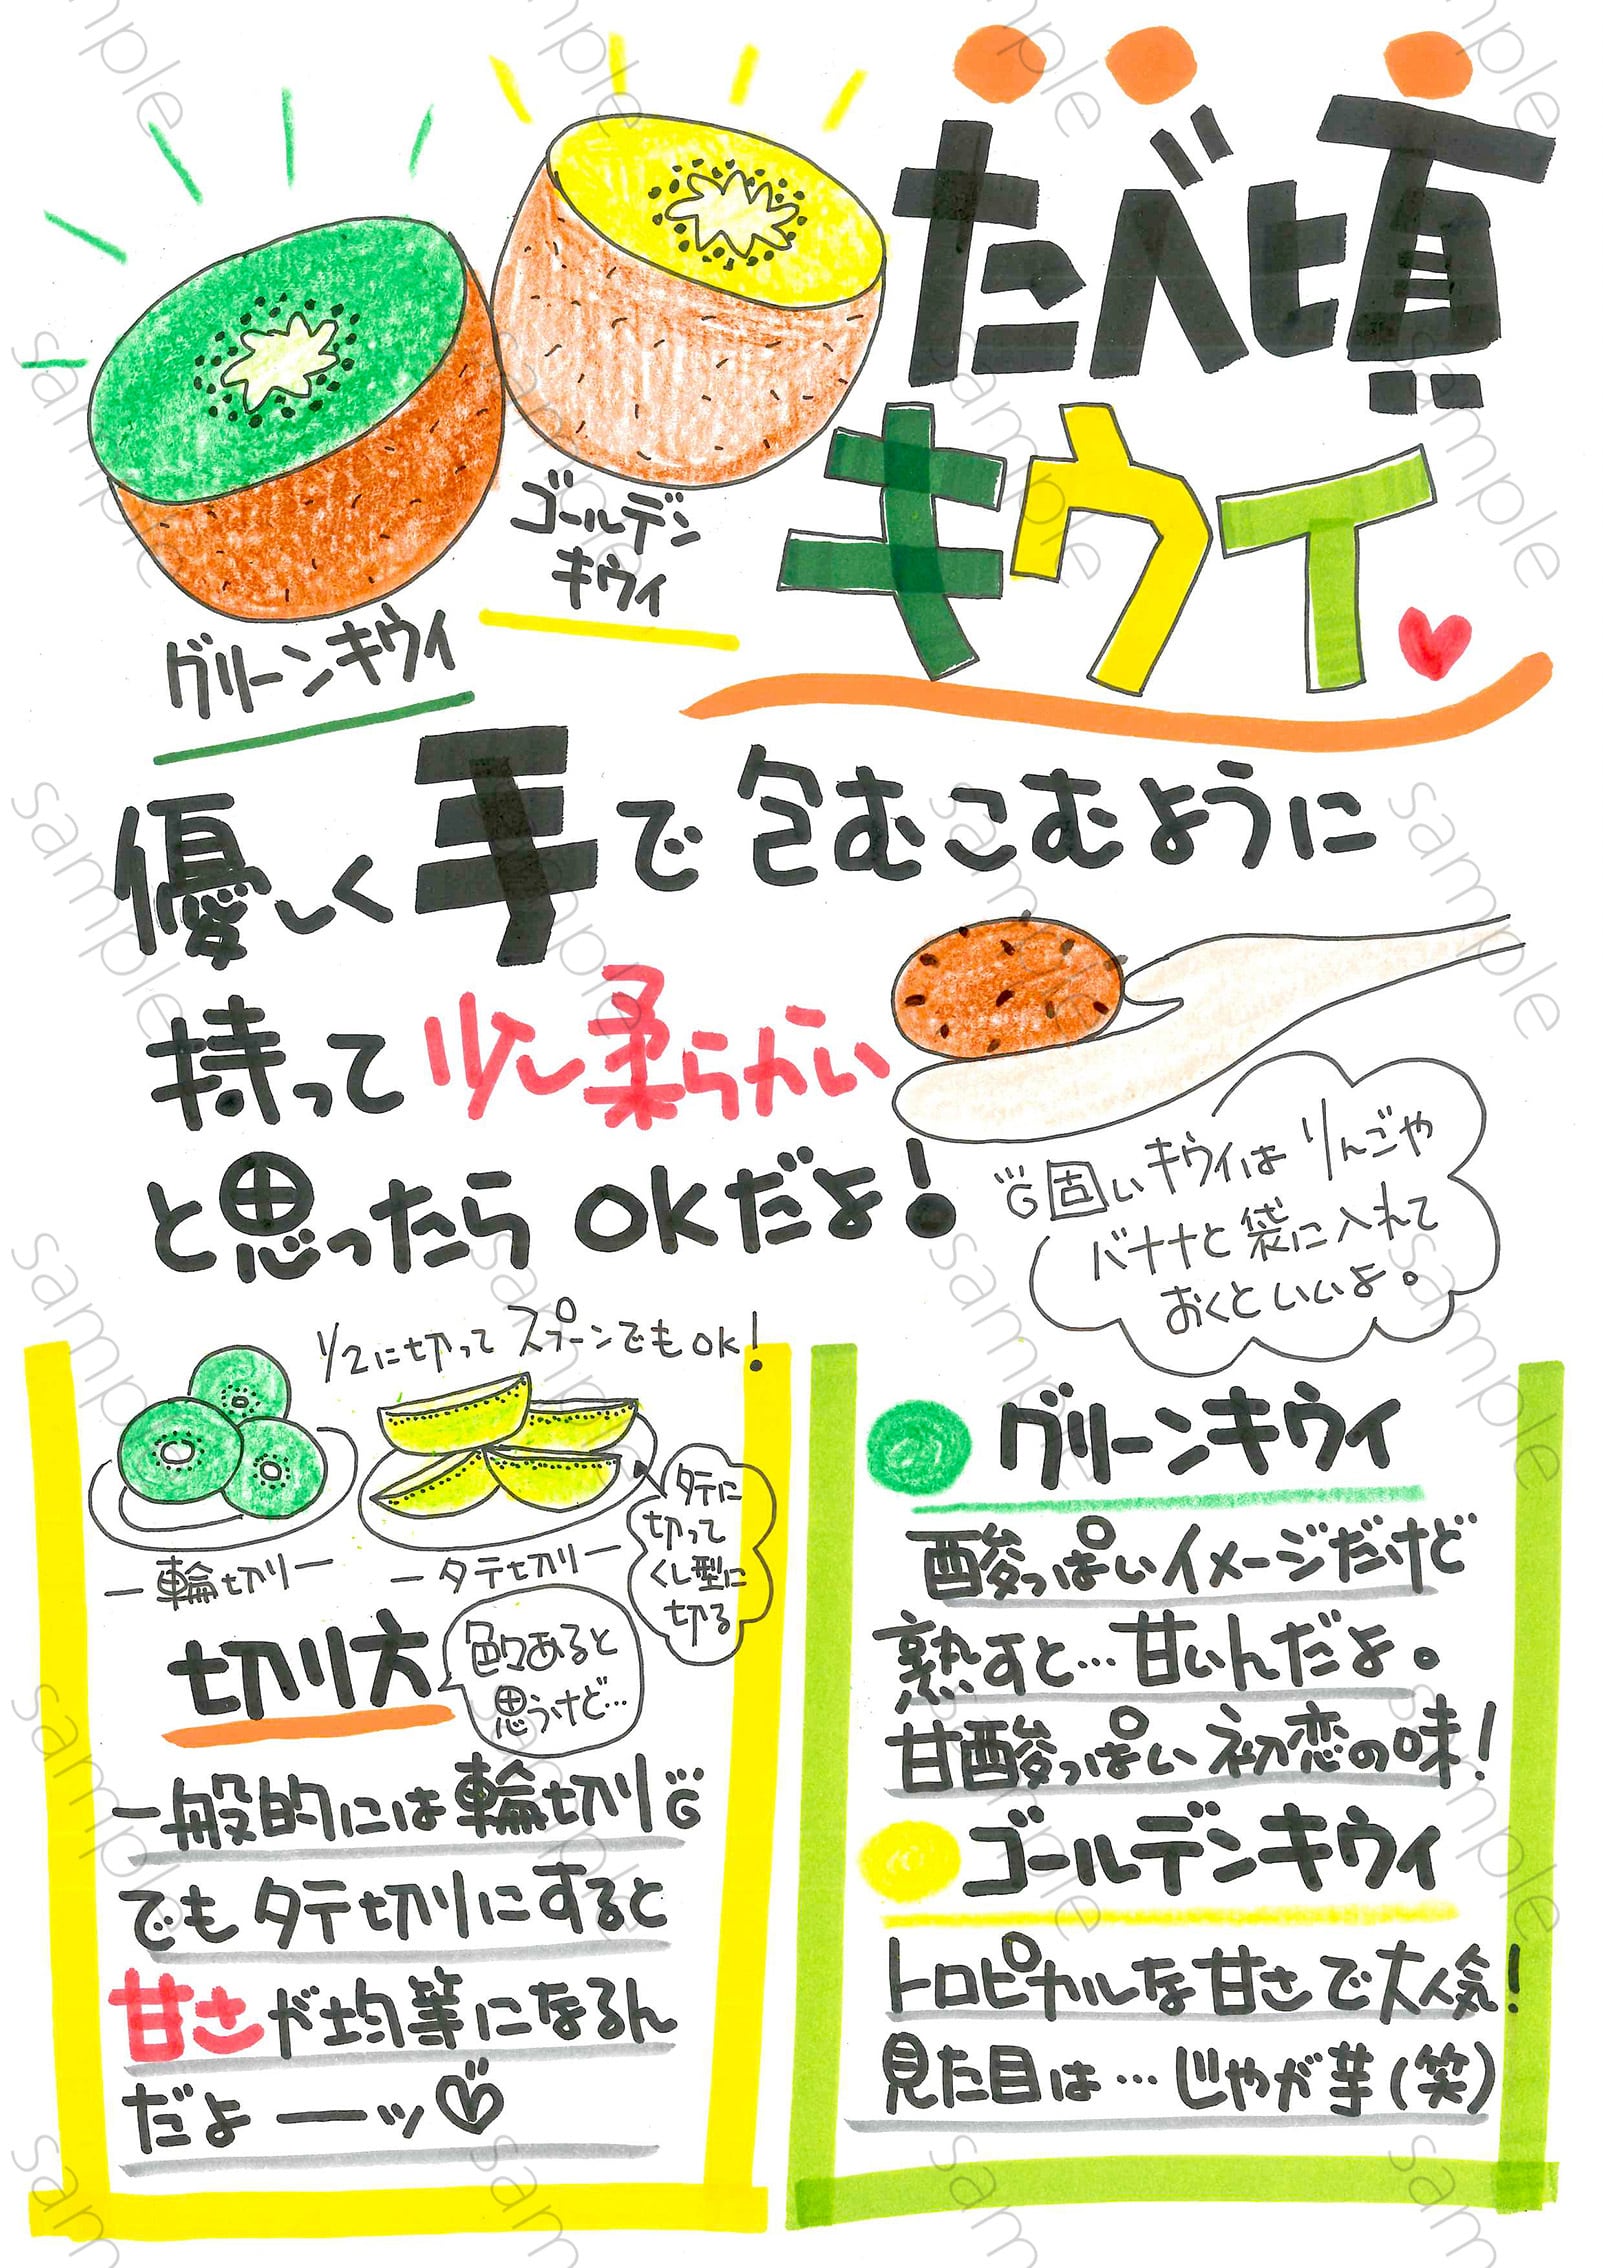 たべ頃
キウイ
ゴールデン
キウイ
グリーンキウイ
優しく手で包むこむように
持って少し柔らかい
と思ったらOKだよ!
固いキウイはりんごや
バナナと袋に入れて
おくといいよ。
1/2に切ってスプーンでもOK!
ー輪切りー
ータテ切りー
タテに
切って
くし型に
切る
切り方
色々あると
思うけど…
一般的には輪切り
でもタテ切りにすると
甘さが均等になるん
だよーッ
グリーンキウイ
酸っぱいイメージだけど
熟すと…甘いんだよ。
甘酸っぱい初恋の味!
ゴールデンキウイ
トロピカルな甘さで大人気!
見た目は…じゃが芋(笑)
sample